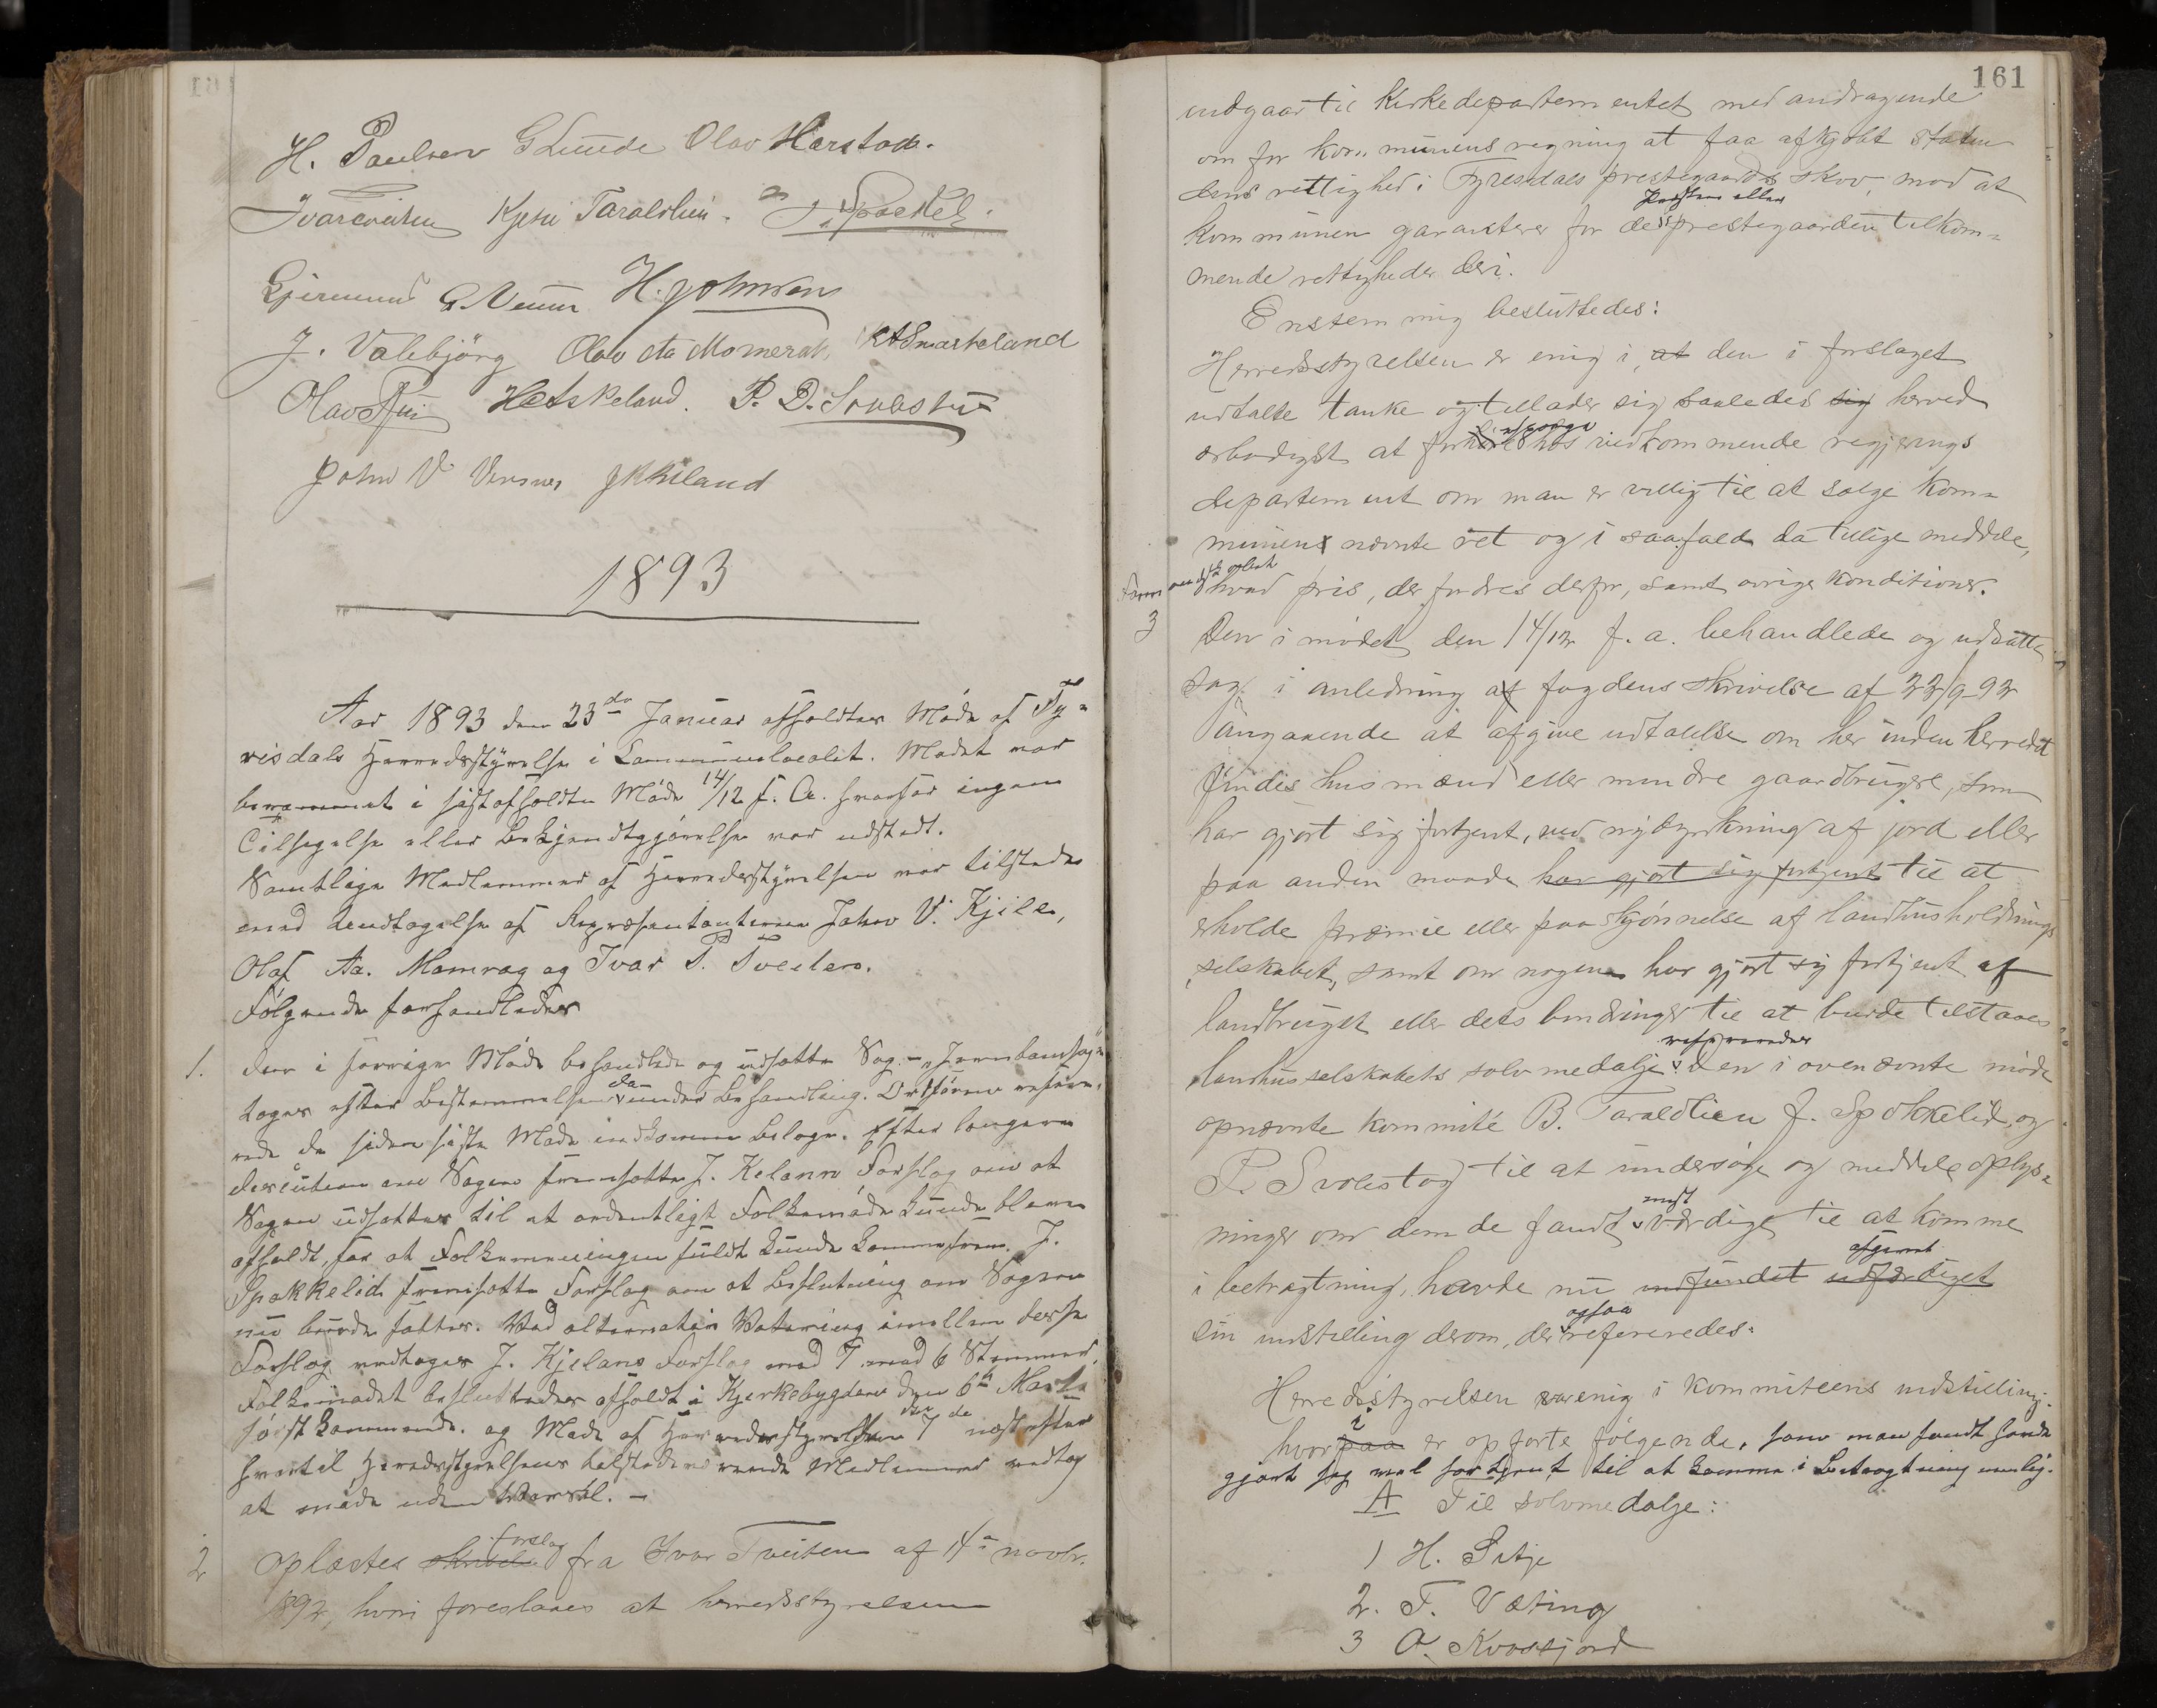 H. Paulsen G Lunde Olav Harstad.
Ivar Tveiten Kjetil Taraldlien. J. Spockel.
Gjermund G. Veum H. Johnsen
J. Valebjörg Olav Aa Momerak K A Smarteland
Olav Hetskeland. P. D. Svalestu
John V. Vensnes J K Kiland
1893
Aar 1893 den 23de Januar afholdtes Møde af Fy-
risdals Herredsstyrelse i Communelocalet. Mødet var
berammet i sidstafholdte Møde 14/12 f. A. hvorfor ingen
Tilsigelse eller Bekjendtgjørelse var udstedt.
Samtlige Medlemmer af Herredsstyrelsen var tilstede
med Undtagelse af Repræsentanterne John V. Kjile,
Olaf Aa. Momrag og Ivar T. Tveiten.
Følgende forhandledes
1. Den i forrige Møde behandlede og udsatte Sag - "Jernbanesag"
toges efter Bestemmelsen da under Behandling. Ordføreren refere-
rede de siden sidste Møde indkomne Belæge. Efter længere
discution om Sagen fremsatte J. Kelann Forslag om at
Sagen udsættes til at ordentligt Folkemøde kunde blive
afholdt, for at Folkemeningen fuldt kunde komme frem. J.
Spokkelid fremsatte Forslag om at Beslutning om Sagen
nu burde fattes. Ved alternativ Votering imellem disse
Forslag vedtoges J. Kjelans Forslag med 7 mod 6 Stemmer.
Folkemødet besluttedes afholdt i Kyrkebygden den 6te Marts
førstkommende. og Møde af Herredsstyrelsen den 7de næstefter
hvortil Herredsstyrelsens tilstedeværende Medlemmer vedtog
at møde uden Varsel. -
2 Oplæstes forslag fra Ivar Tveiten af 14de novbr.
1892, hvori foreslaaes at herredsstyrelsen
161
indgaar til Kirkedepartementet med andragende
om for kommunens regning at faa afkjøbt staten
dens rettighed i Fyresdals prestegaards skov, mod at
kommunen garanterer for de presten eller prestegaarden tilkom-
mende rettigheder deri.
Enstemmig besluttedes:
Herredsstyrelsen er enig i, at den i forslaget
udtalte tanke og tillader sig saaledes sig herved
ærbødigst at forespørge hos vedkommende regjerings
departement om man er villig til at sælge kom-
munen nævnte ret og i saafald da tillige meddele,
hvad pris, der fordres derfor, samt øvrige konditioner.
3 Den i mødet den 14/12 f. a. behandlede og udsatte
sag i anledning af fogdens skrivelse af 22/9-92
angaaende at afgive udtalelse om her inden herredet
findes husmænd eller mindre gaardbrugere, som
har gjort sig fortjent, ved nydyrkning af jord eller
paa anden maade har gjort sig fortjent til at
erholde præmie eller paaskjønnelse af landhusholdnings
selskabet, samt om nogen har gjort sig fortjent af
landbruget eller dets binæringer til at burde tilstaaes
landhusselskabets sølvmedalje refereredes. Den i ovennævnte møde
opnævnte kommité B. Taraldlien J. Spokkelid, og
P. Svalestog til at undersøge og meddele oplys-
ninger om dem de fandt mest værdige til at komme
i betragtning, havde nu indfundet udfærdiget afgivet
sin indstilling derom, der ogsaa refereredes:
Herredsstyrelsen var enig i kommiteens indstilling:
hvori paa er opførte følgende, som man fandt havde
gjort sig vel fortjent til at komme i Betragtning nemlig.
A Til sølvmedalje:
1 H. Sitje
2. T. Væting
3 O. Kvossjord